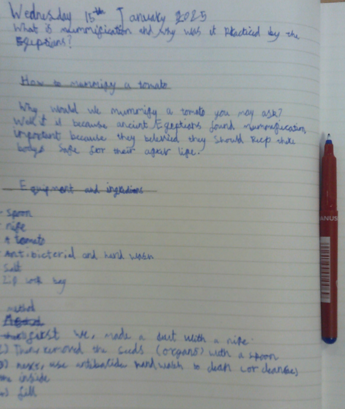 Wednesday 15th January 2025
What is mummification and why was it practiced by the
Egyptians?
How to mummify a tomato
Why would we mummify a tomato you may ask?
Well it is because ancient Egyptians found mummification
important because they believed they should keep their
bodys safe for their after life.
Equipment and ingredients
- spoon
- nife
- tomato
- Antibacterial and hand wash
Salt
zip lock bag
method
first we, made a cut with a nife:
2) Then removed the seeds (organs) with a spoon
3) next, use antibacterial hand wash to clean (or cleanse)
the inside
4) fill